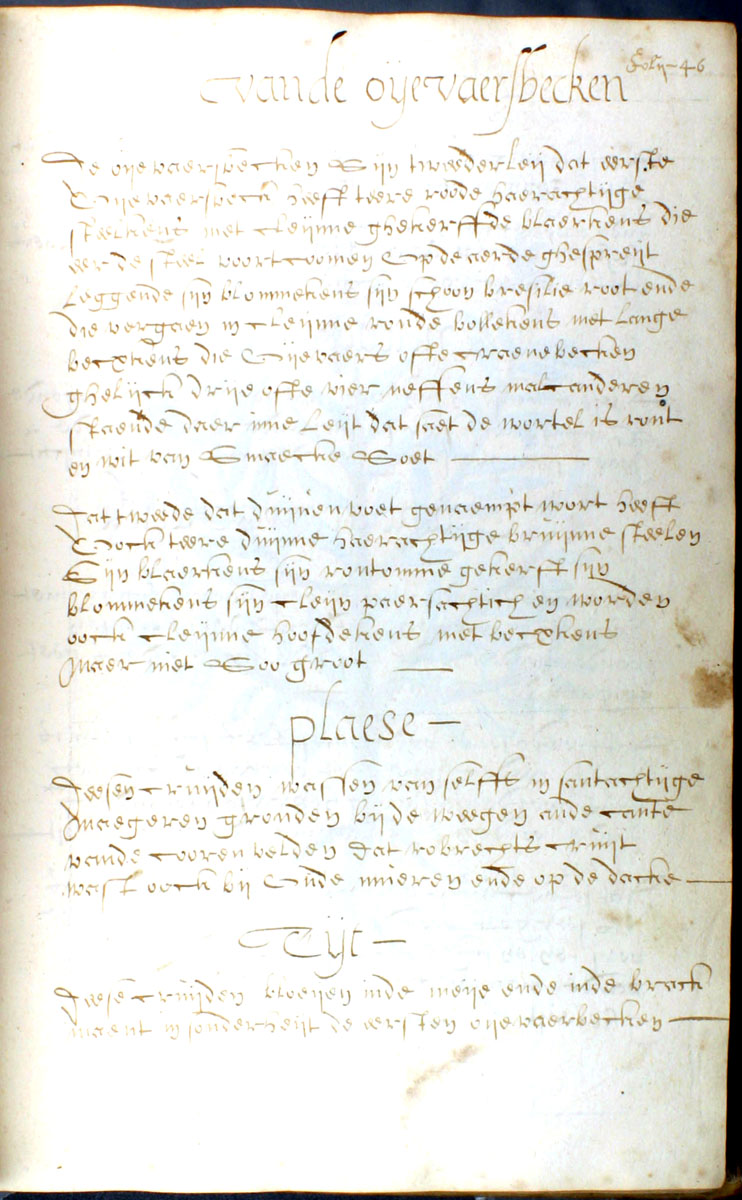 Folÿ 46
vande oÿevaersbecken
De oÿevaersbecken Sijn tweederleij dat eerste
Oÿevaersbeck heeft teere roode haerachtÿge
steelkens met cleijnne ghekerffde blaerkens die
eer de steel voortcoomen Op de aerde ghespreijt
Leggende sijn blommekens sijn schoon bresilie root ende
die vergaen in cleijnne ronde bollekens met lange
becxkens die Oÿevaers ofte craenebecken
ghelijck drije ofte vier neffens malcanderen
staende daer inne leijt dat saet de wortel is ront
en wit van Smaecke Soet
Dat tweede dat duijven voet genaempt wort heeft
Oock teere dunne haerachtÿge bruijnne steelen
Sijn blaerkens sijn rontomme gekerft sijn
blommekens sijn cleijn paersachtich en worden
oock cleijnne hoofdekens met becxkens
Maer niet Soo groot
plaese
Deesen cruijden wassen van selffs in santachtÿge
Maegeren gronden bij de weegen ande cante
vande cooren velden Dat robrechts cruijt
wast oock bij Oude mueren ende op de dacke
Tijt
Deesen cruijden bloeijen inde meije ende inde brack
maent insonderheijt de eersten oijevaerbecken